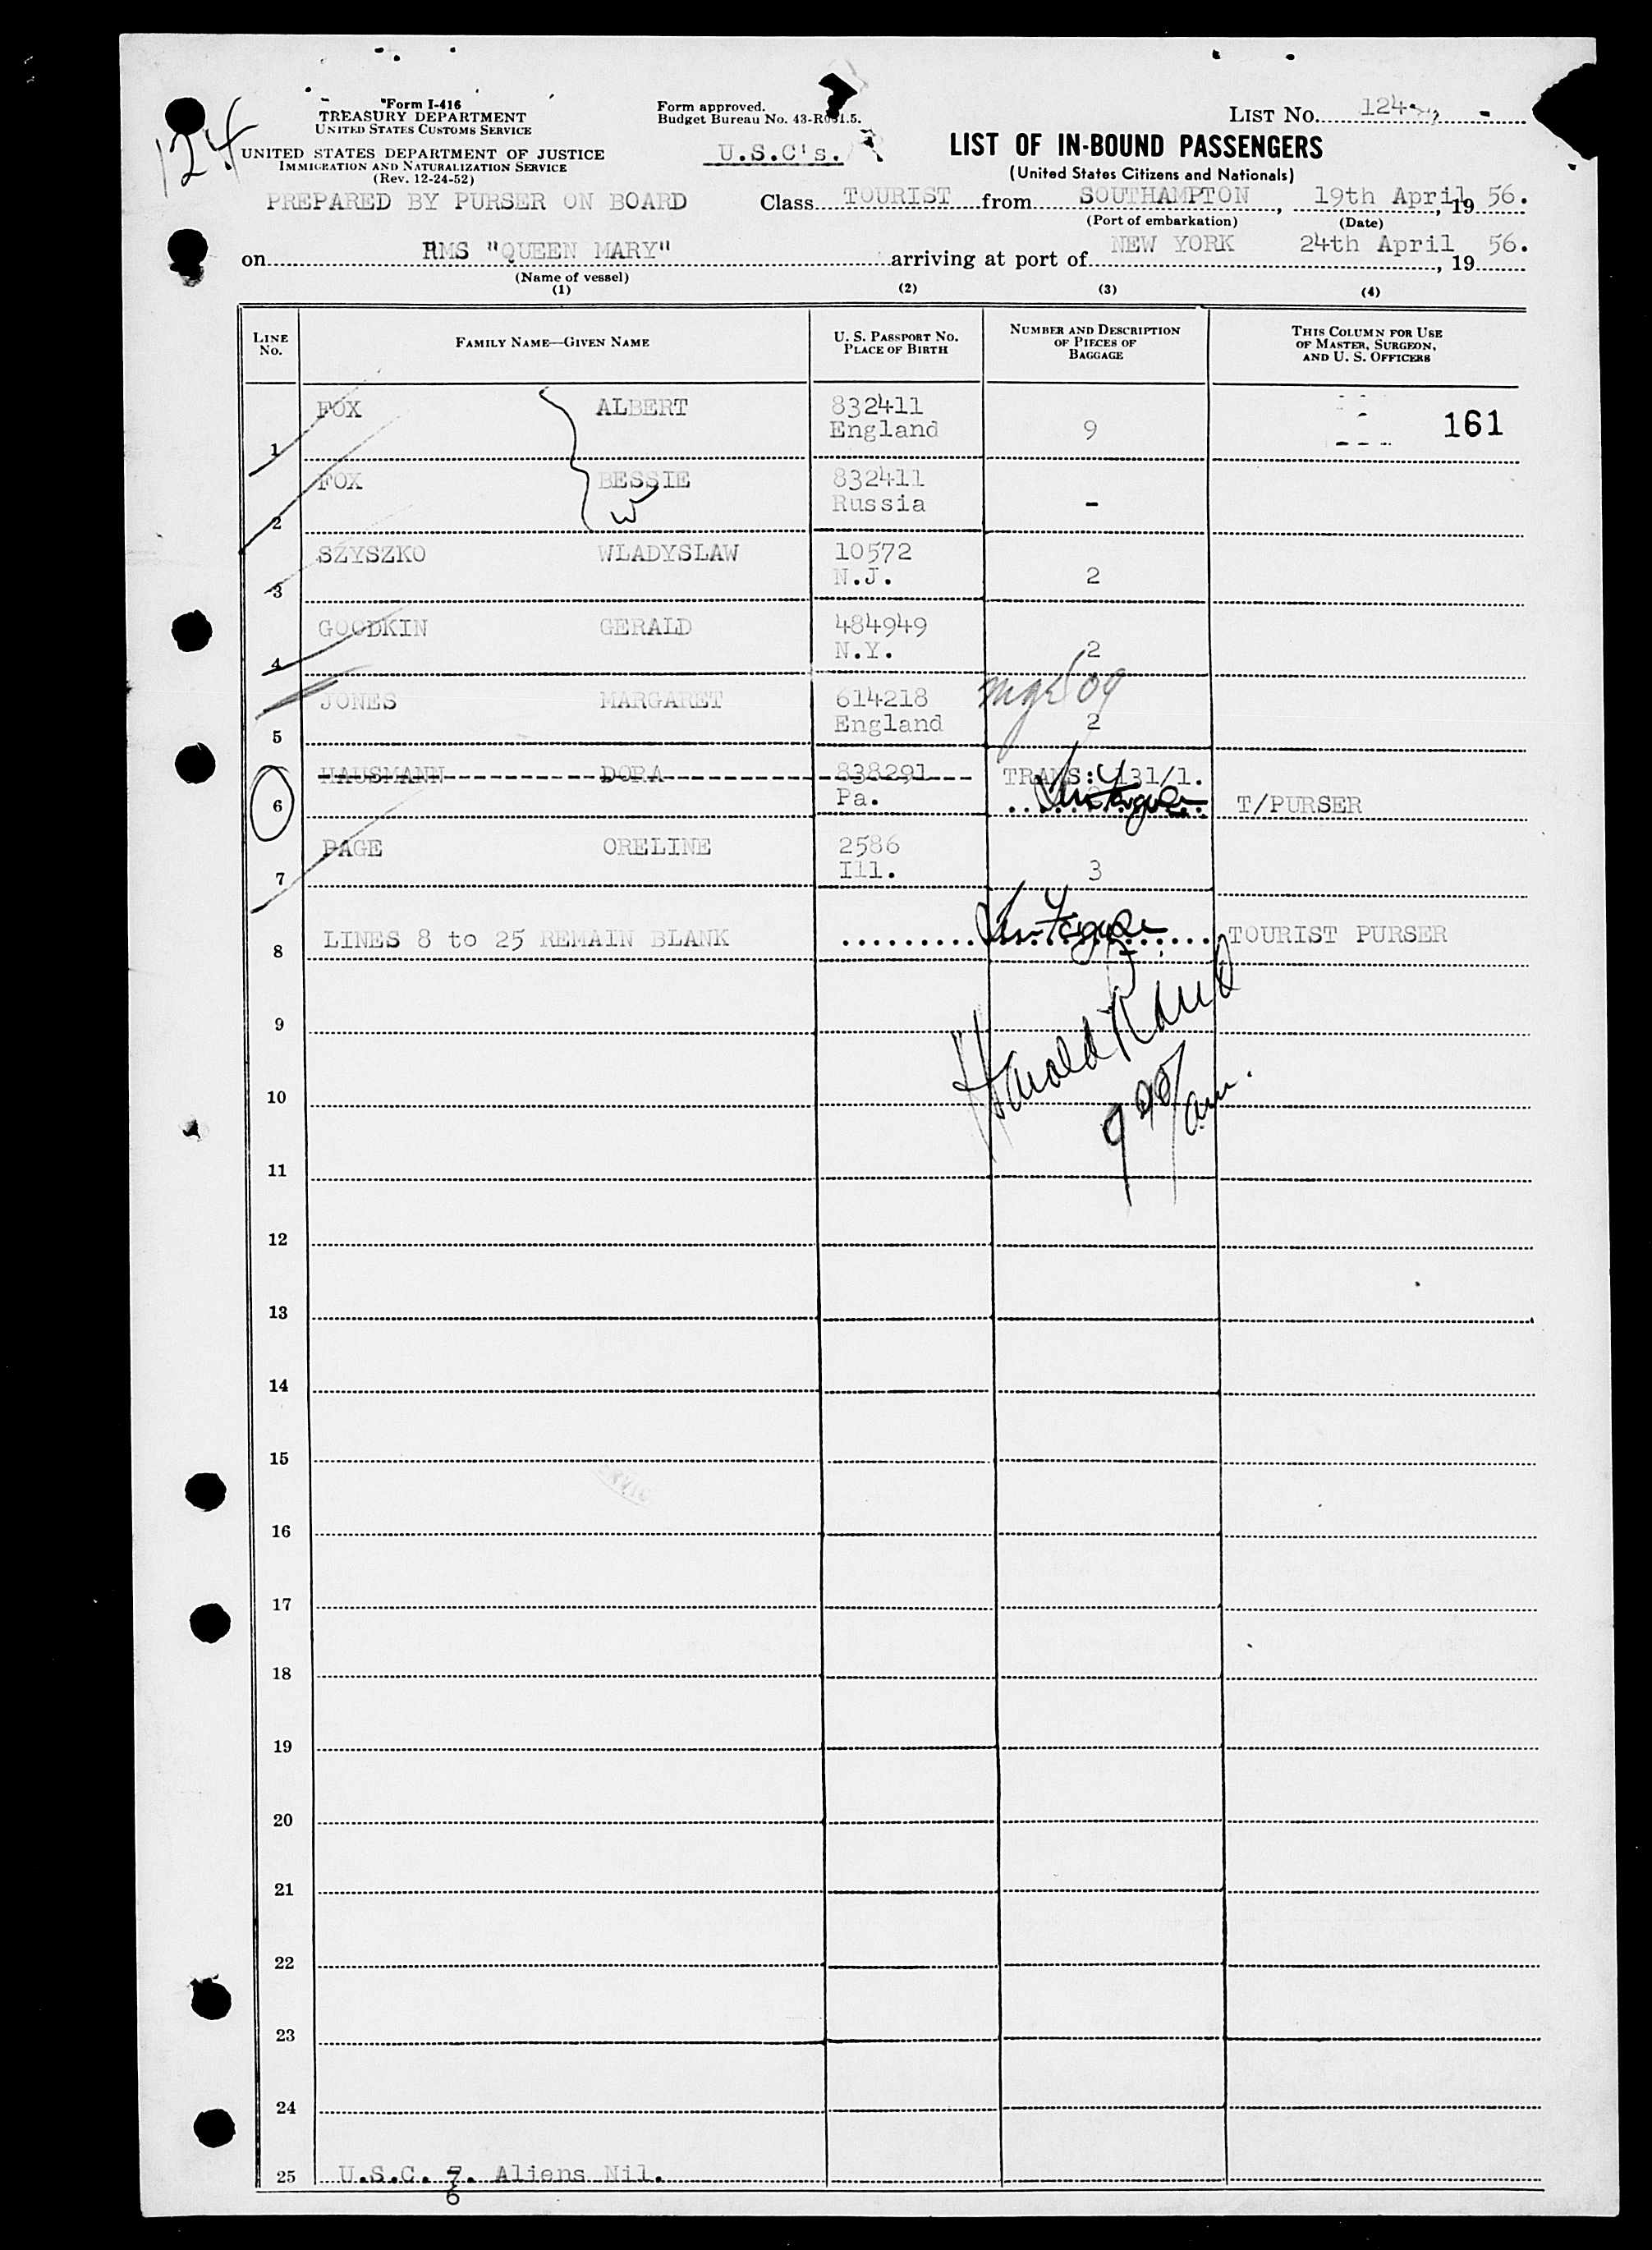 "Form I-416
TREASURY DEPARTMENT
UNITED STATES CUSTOMS SERVICE
UNITED STATES DEPARTMENT OF JUSTICE
IMMIGRATION AND NATURALIZATION SERVICE
(Rev. 12-24-52)
124
Form approved.
Budget Bureau No. 43-R051.5.
U.S.C's.
LIST No. 124
LIST OF IN-BOUND PASSENGERS
(United States Citizens and Nationals)
PREPARED BY PURSER ON BOARD Class TOURIST from SOUTHAMPTON, 19th April, 19 56.
(Port of embarkation) (Date)
on RMS "QUEEN MARY" arriving at port of NEW YORK 24th April, 19 56.
(Name of vessel)
(1) (2) (3) (4)
LINE No. FAMILY NAME—GIVEN NAME U. S. PASSPORT No. PLACE OF BIRTH NUMBER AND DESCRIPTION OF PIECES OF BAGGAGE THIS COLUMN FOR USE OF MASTER, SURGEON, AND U. S. OFFICERS
1 FOX ALBERT 832411 England 9 161
2 FOX BESSIE W 832411 Russia -
3 SZYSZKO WLADYSLAW 10572 N.J. 2
4 GOODKIN GERALD 484949 N.Y. 2
5 JONES MARGARET 614218 England 2
6 HAUSMANN DORA 838291 Pa. TRANS: 131/1. T/PURSER
7 PAGE ORELINE 2586 Ill. 3
8 LINES 8 to 25 REMAIN BLANK TOURIST PURSER
9
Harold Rand
10
900/am.
11
12
13
14
15
16
17
18
19
20
21
22
23
24
25 U.S.C. 7. Aliens Nil.
6